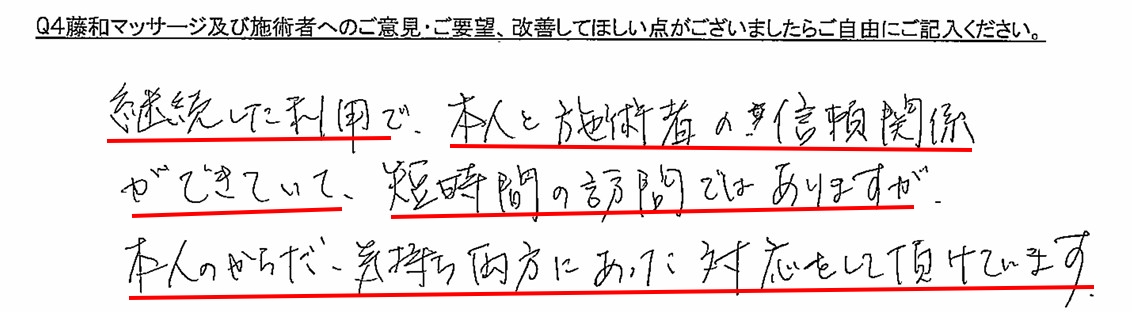 Q4藤和マッサージ及び施術者へのご意見・ご要望、改善してほしい点がございましたらご自由にご記入ください。
継続した利用で、本人と施術者の信頼関係
ができていて、短時間の訪問ではありますが、
本人のからだ、気持ち両方にあった対応をして頂けています。